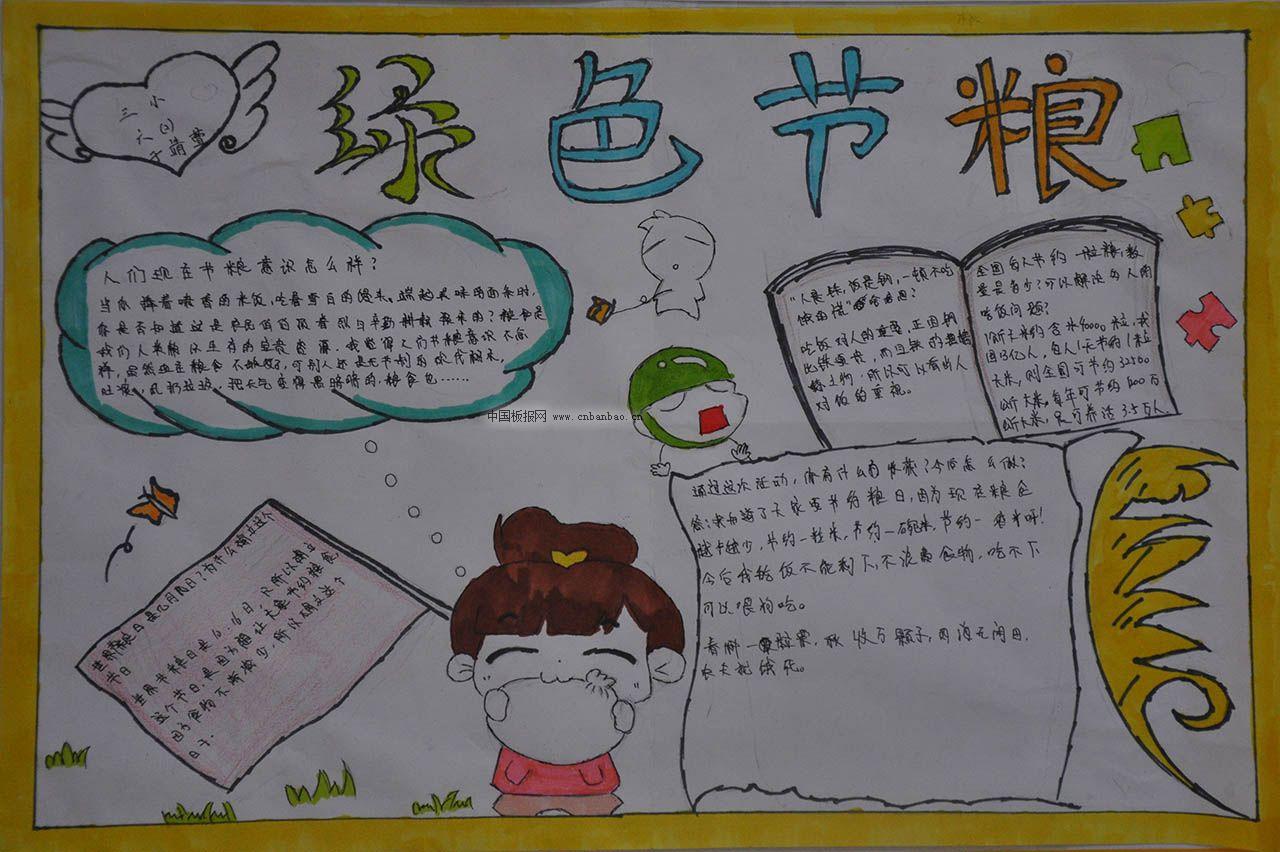 三小
六(2)
于靖萱
绿色节粮
人们现在节粮意识怎么样?
当你捧着喷香的米饭,吃着雪白的馒头,端起美味的面条时,
你是否知道这是农民伯伯顶着烈日辛勤耕耘换来的?粮食是
我们人类赖以生存的宝贵资源。我觉得人们节粮意识不怎
样,虽然现在粮食
中国板报网 www.cnbanbao.cn
"人是铁,饭是钢,一顿不吃
饿得慌"
吃饭对人的重要,正因钢
比铁
对他的重视。
全国每人节约一粒粮,数
量是多少?可以解决多少人的
吃饭问题?
1公斤大米约含米40000粒,我
国13亿人,每人1天节约1粒
大米,则全国可节约32500
公斤大米,每年可节约1200万
公斤大米,足可养活3.5万人.
通过这次活动,你有什么的收获?今后怎么做?
答:我知道了大家要节约粮食,因为现在粮食
越来越少,节约一粒米,节约一碗米,节约一
今后我吃饭不能剩下,不浪费食物,吃不下
可以喂狗吃。
春种一粟,秋收万颗子,四海无闲田,
农夫犹饿死。
世界粮食日是几月几日?为什么确立这个
节日
世界节粮日是10.16日,只所以确立
这个节日,是因为
因为食物不断减少,所以确立这个
日子.